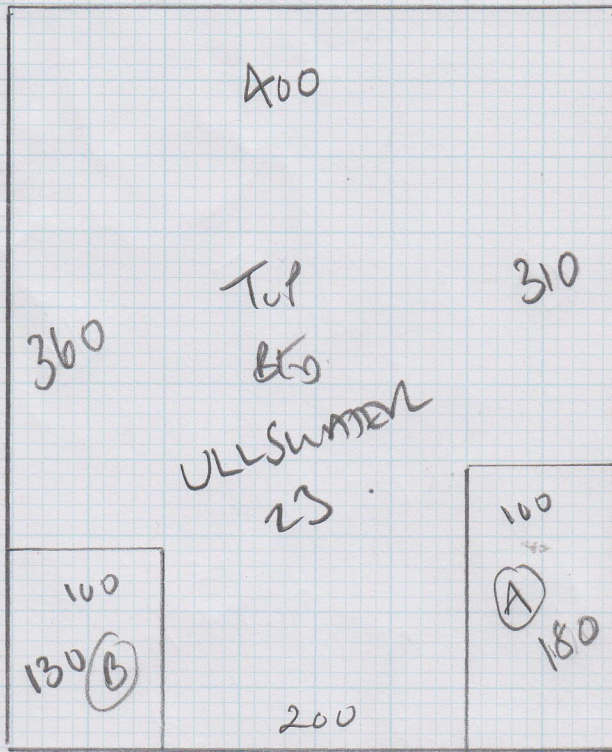 400
TOP
310
360
BED
ULLSWATER
23
100
100
A
180
130 B
200